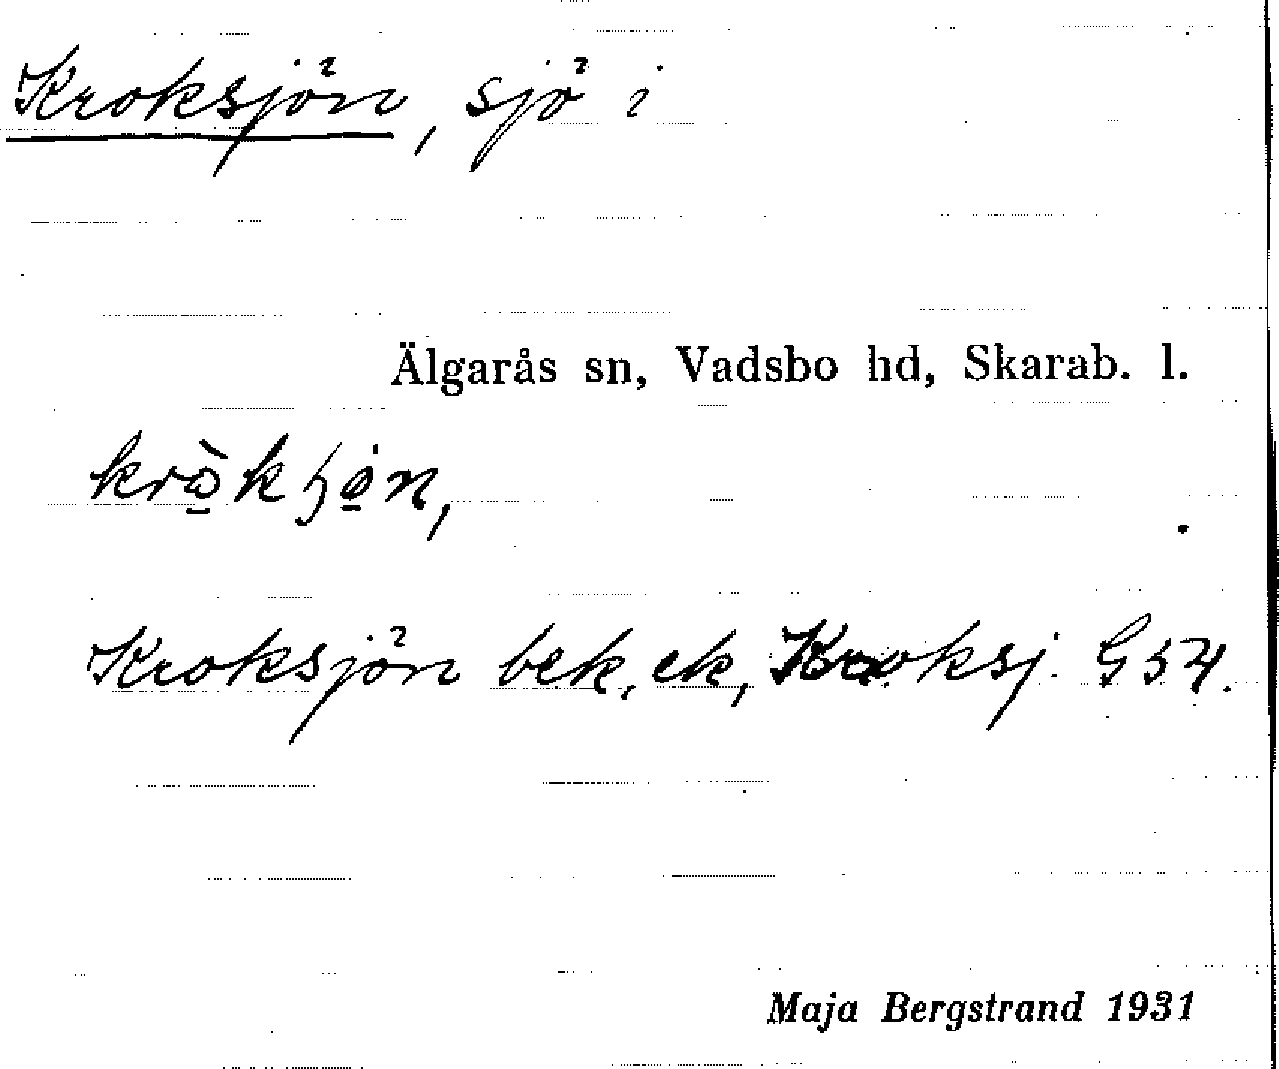 Kroksjön, sjö i
Älgarås sn, Vadsbo hd, Skarab. l.
Kroksjön bek. ek, Kroksj. G54.
Maja Bergstrand 1931